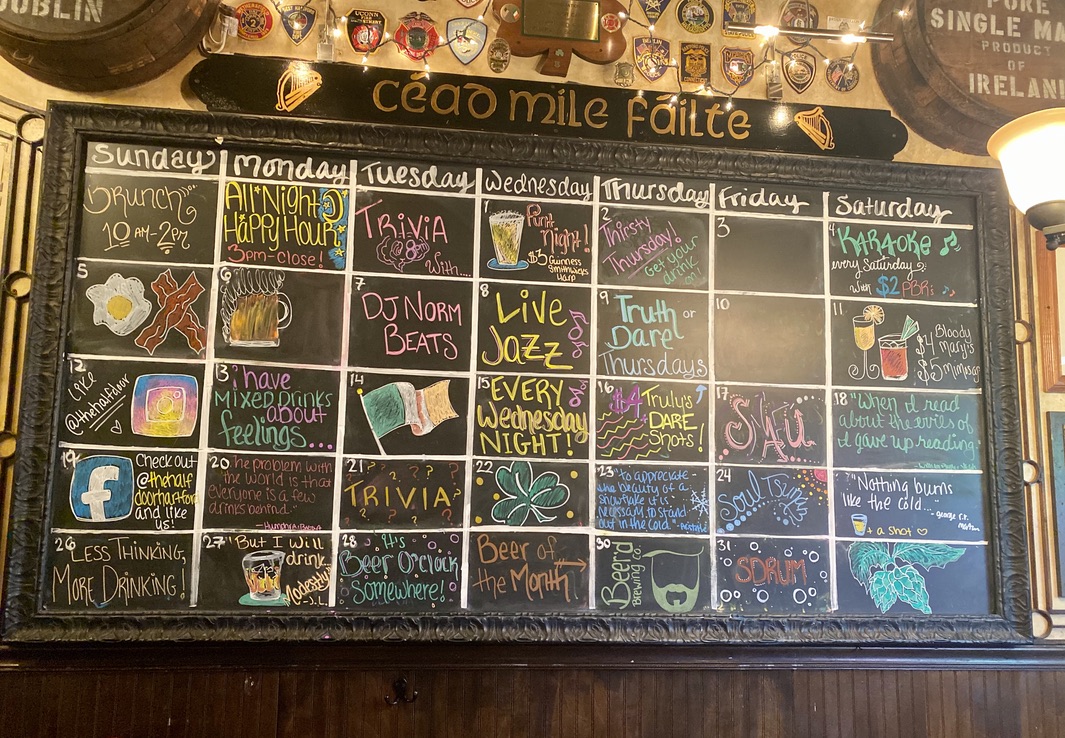 DUBLIN
PURE
SINGLE MA
PRODUCT
OF
IRELAND
UCONN
céad míle fáilte
Sunday
Monday
Tuesday
Wednesday
Thursday
Friday
Saturday
Brunch
10 AM-2PM
All Night
Happy Hour
3pm-close!
TRIVIA
With....
1
Pint
night!
$3 Guinness
Smithwicks
Harp
2
Thirsty
Thursday!
Get your
drink
on
3
4
KARAOKE
every Saturday
with $2 PBRs
5
6
7
DJ NORM
BEATS
8
Live
Jazz
9
Truth or
Dare
Thursdays
10
11
$4
Bloody
Mary's
$5 Mimosas
12
Like
@thehalfdoor
13
i have
MIXED DRINKS
about
feelings...
14
15
EVERY
Wednesday
NIGHT!
16
$4 Truly's
DARE
Shots!
17
18
"When I read
about the evils of
I gave up reading."
19
Check out
@thehalf
doorhartford
and like
us!
20
"The problem with
the world is that
everyone is a few
drinks behind."
-Humphrey Bogart
21
TRIVIA?
22
23
"to appreciate
the beauty of a
snowflake it is
necessary to stand
out in the cold"
24
Soul
"Nothing burns
like the cold...
-george r.r.
martin
+ a shot
26
LESS THINKING,
MORE DRINKING!
27
"But I will
drink
Modestly"
28
It's
Beer O'clock
Somewhere!
Beer of
the Month
30
Beer'd
Brewing Co.
31
SDRUM